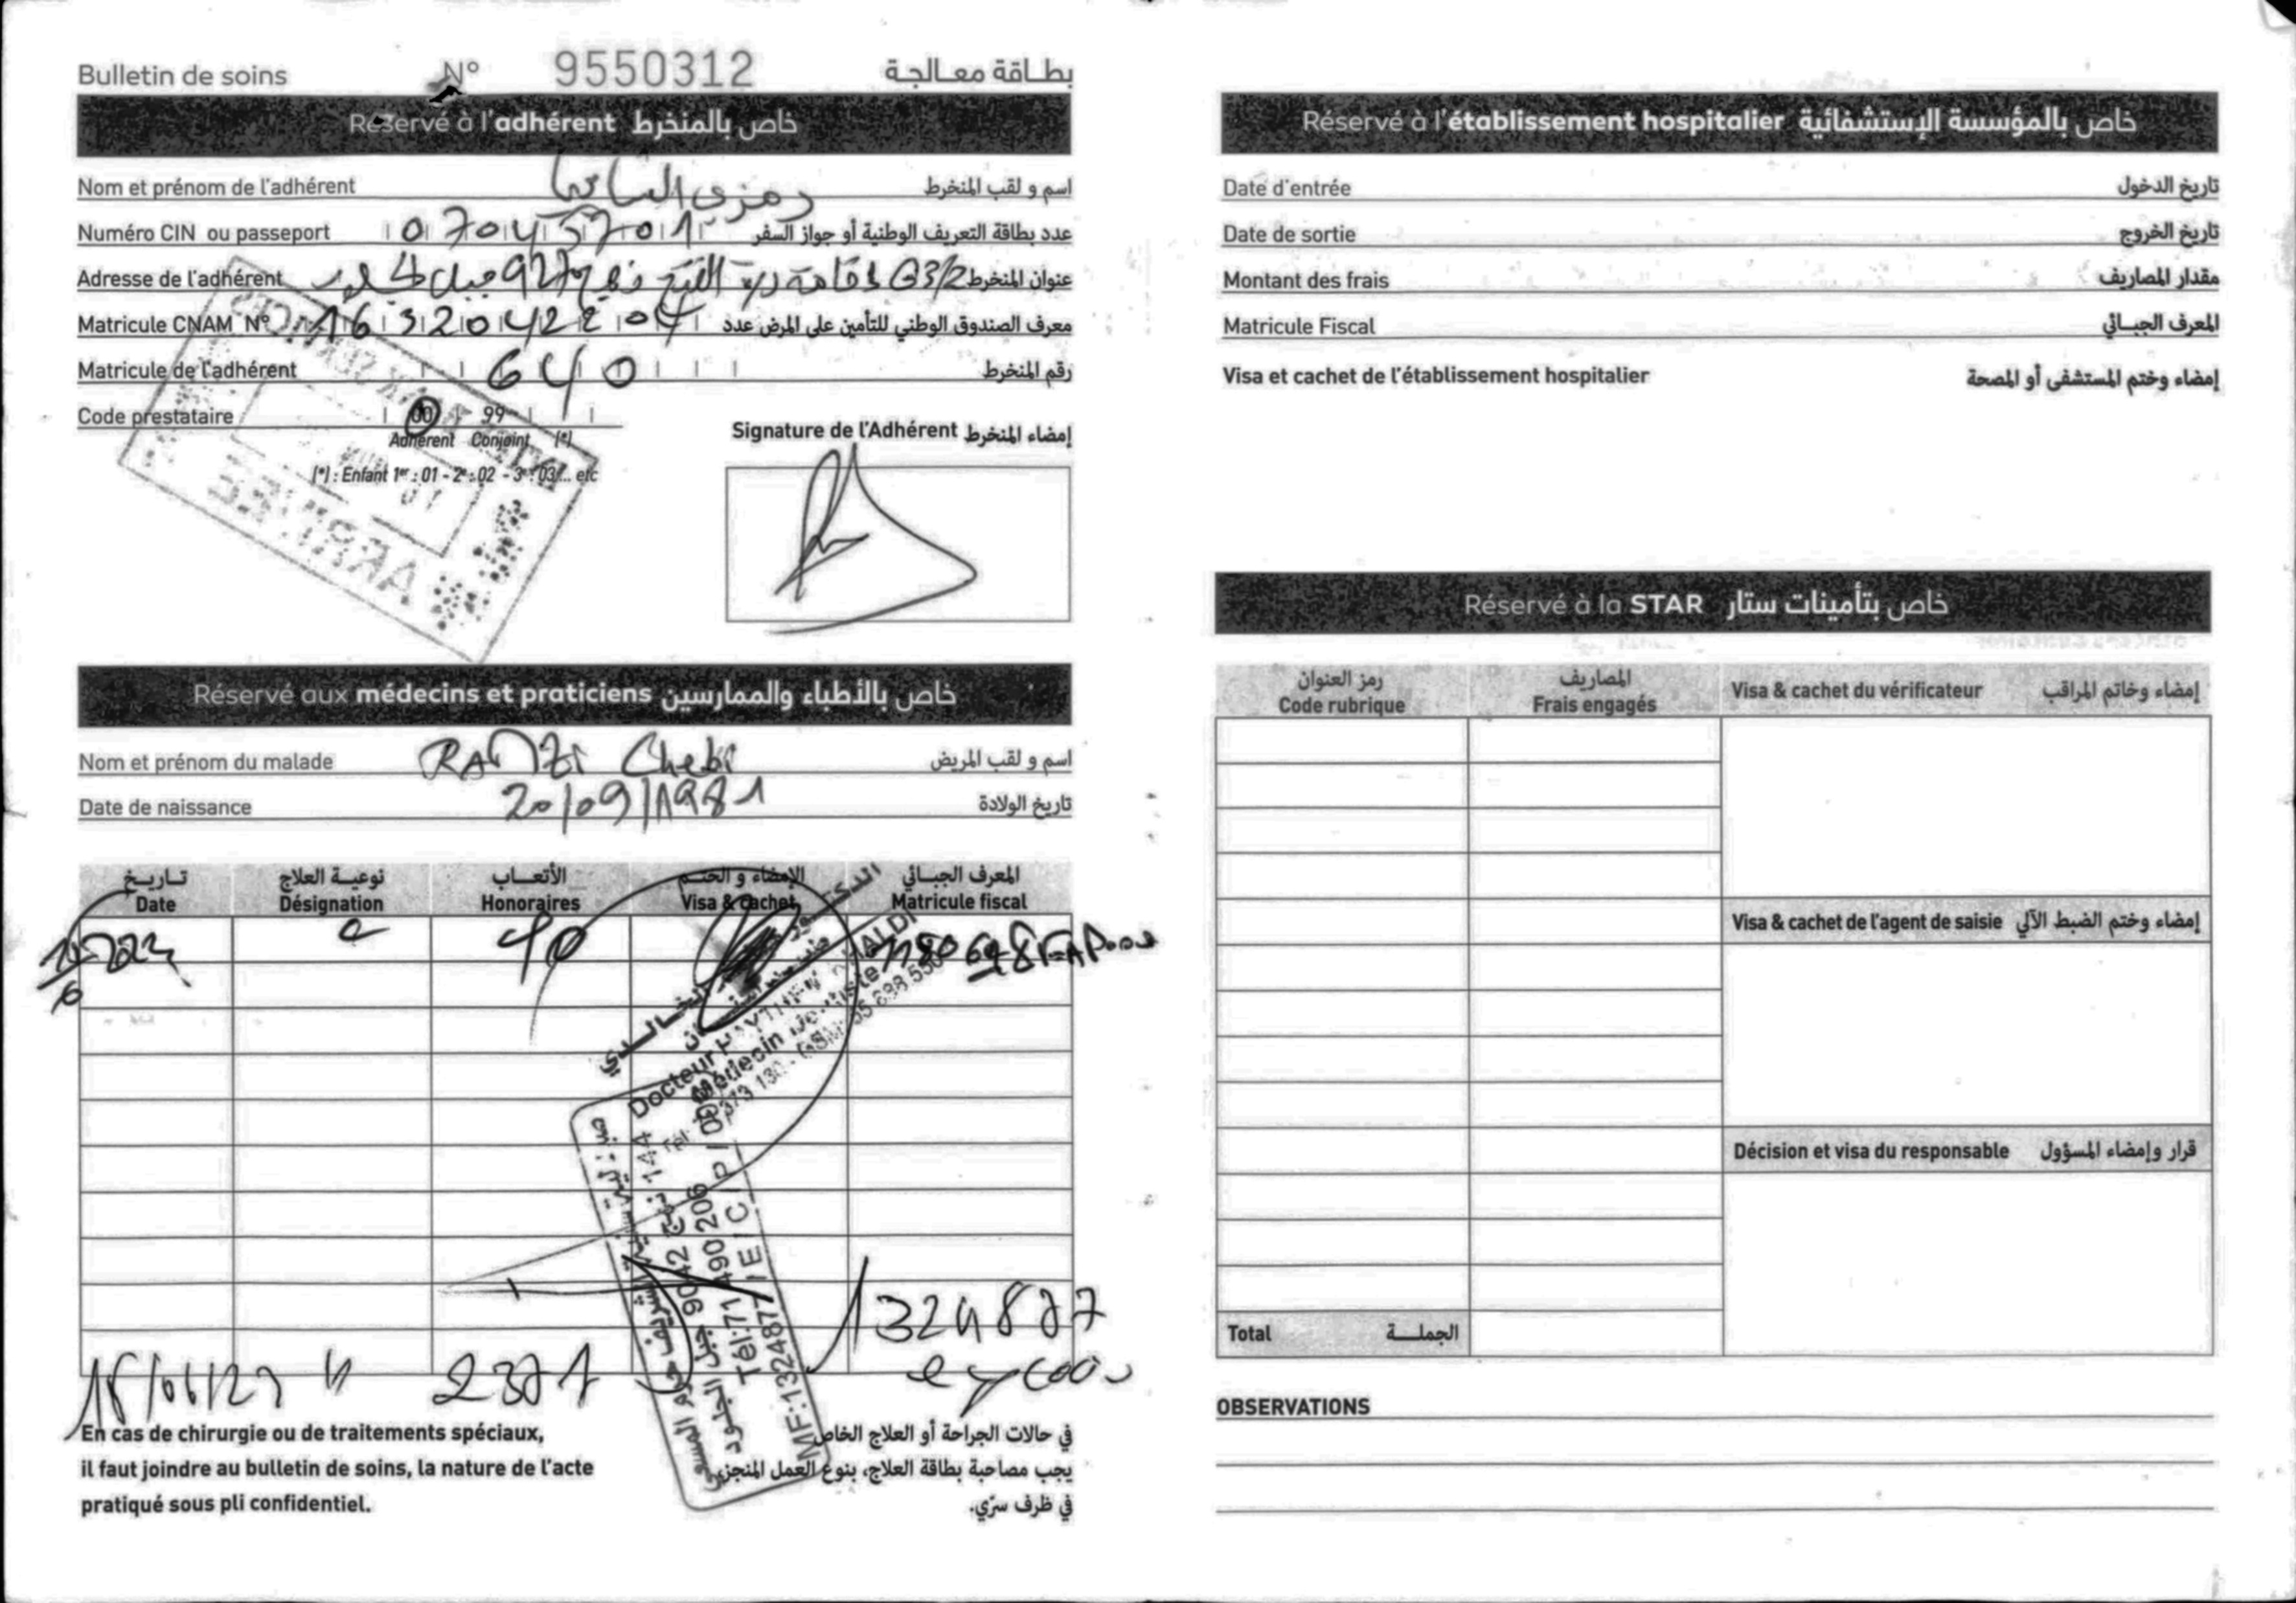 Bulletin de soins N° 9550312 بطاقة معالجة
Réservé à l'adhérent خاص بالمنخرط
Nom et prénom de l'adhérent رمزي الشابي اسم و لقب المنخرط
Numéro CIN ou passeport 07045701 عدد بطاقة التعريف الوطنية أو جواز السفر
Adresse de l'adhérent G3/2 إقامة عنوان المنخرط
Matricule CNAM N° معرف الصندوق الوطني للتأمين على المرض عدد
Matricule de l'adhérent 640 رقم المنخرط
Code prestataire 00 99
Adhérent Conjoint (*)
(*) : Enfant 1er : 01 - 2e : 02 - 3e : 03/... etc
Signature de l'Adhérent إمضاء المنخرط
Réservé aux médecins et praticiens خاص بالأطباء والممارسين
Nom et prénom du malade RAMZI Chebi اسم و لقب المريض
Date de naissance 20/09/1981 تاريخ الولادة
تاريخ نوعية العلاج الأتعاب الإمضاء و الختم المعرف الجبائي
Date Désignation Honoraires Visa & cachet Matricule fiscal
Docteur HAYTHEM KHALDI
Médecin dentiste
Tél:71 490 206
MF:1324877/E/C/P/000
1324877
15/06/23 2371
En cas de chirurgie ou de traitements spéciaux,
il faut joindre au bulletin de soins, la nature de l'acte
pratiqué sous pli confidentiel.
في حالات الجراحة أو العلاج الخاص
يجب مصاحبة بطاقة العلاج، بنوع العمل المنجز
في ظرف سرّي.
Réservé à l'établissement hospitalier خاص بالمؤسسة الإستشفائية
Date d'entrée تاريخ الدخول
Date de sortie تاريخ الخروج
Montant des frais مقدار المصاريف
Matricule Fiscal المعرف الجبائي
Visa et cachet de l'établissement hospitalier إمضاء وختم المستشفى أو المصحة
Réservé à la STAR خاص بتأمينات ستار
رمز العنوان المصاريف
Code rubrique Frais engagés Visa & cachet du vérificateur إمضاء وخاتم المراقب
Visa & cachet de l'agent de saisie إمضاء وختم الضبط الآلي
Décision et visa du responsable قرار وإمضاء المسؤول
Total الجملة
OBSERVATIONS